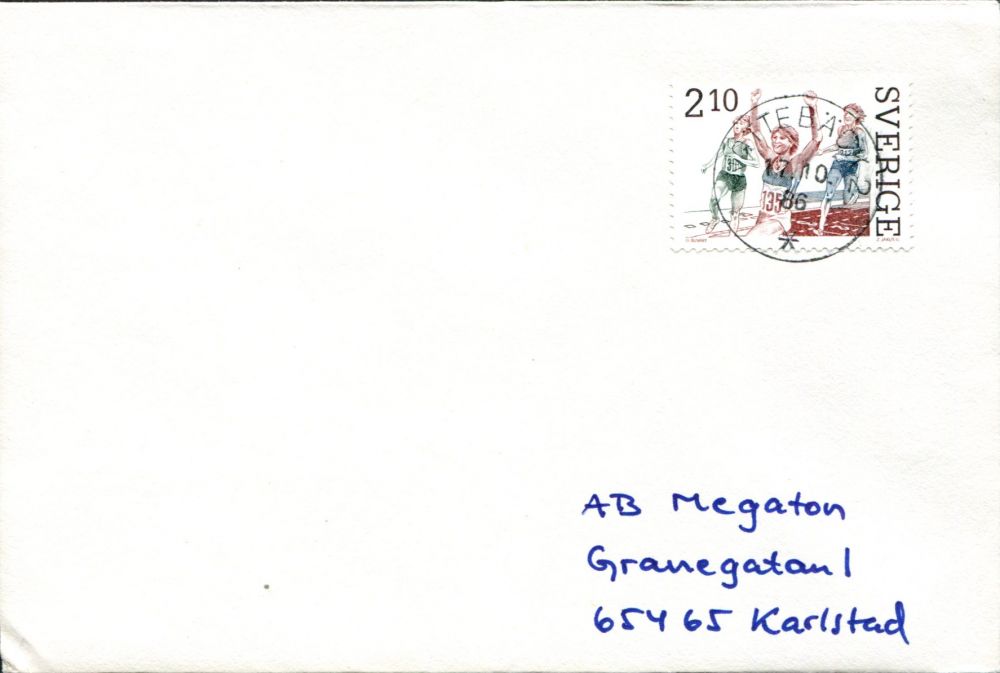 2 10
SVERIGE
17.10.
86
135
AB Megaton
Granegatan 1
654 65 Karlstad